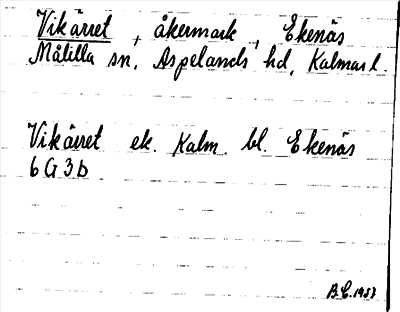 Vikärret, åkermark, Ekenäs
Målilla sn, Aspelands hd, Kalmar l.
Vikärret ek. Kalm. bl. Ekenäs
6G3b
B.C. 1953